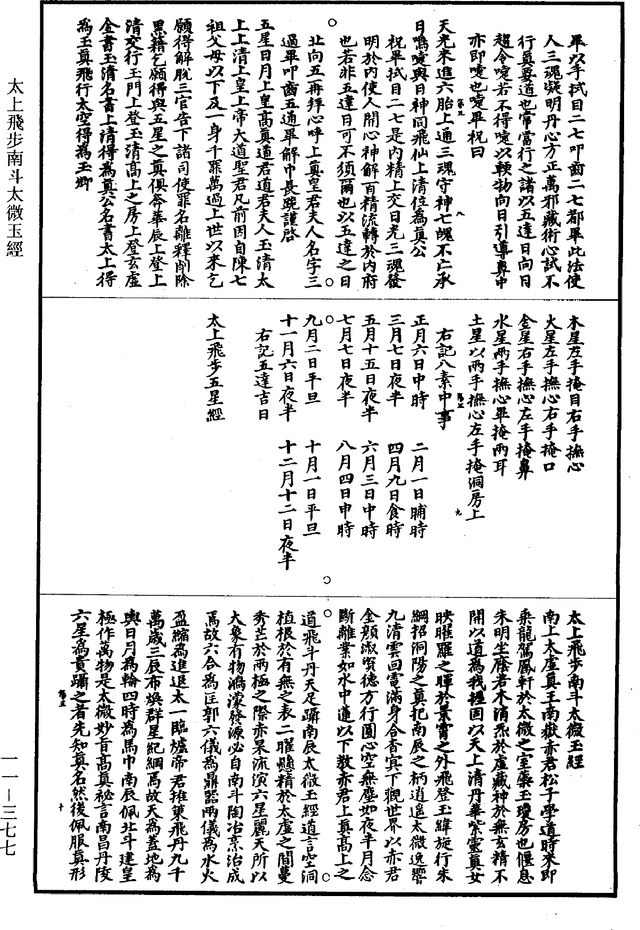 畢以手拭目二七叩齒二七都畢此法使
人三魂凝明丹心方正萬邪藏術心試不
行真要道也常當行之諸以五達日向日
超令嚏若不得嚏以軟物向日引導鼻中
亦即嚏也嚏畢祝曰
天光來進六胎上通三魂守神七魄不亡承
日鳴嚏與日神同飛仙上清位為真公
祝畢拭目二七是內精上交日光三魂發
明於內使人開心神解百精流轉於內府
也若非五達日可不須爾也以五達之日
北向五再拜心呼上真皇君夫人名字三
過畢叩齒五通畢解巾長跪謹啓
五星日月上皇高真道君道君夫人玉清太
上上清上皇上帝大道聖君几前因自陳七
祖父母以下及一身千罪萬過上世以來乞
願得解脫三官告下諸司使罪名離釋削除
黑籍乞願得與五星之真俱奔華辰上登上
清交行玉門上登玉清高上之房上登玄虛
金書玉清名書上清得為真公名書太上得
為玉真飛行太空得為玉卿
木星左手掩目右手撫心
火星左手撫心右手掩口
金星右手撫心左手掩鼻
水星兩手撫心畢掩兩耳
土星以兩手撫心左手掩洞房上
右記八素中事
正月六日中時 二月一日晡時
三月七日夜半 四月九日食時
五月十五日夜半 六月三日中時
七月七日夜半 八月四日申時
九月二日平旦 十月一日平旦
十一月六日夜半 十二月十二日夜半
右記五達吉日
太上飛步五星經
太上飛步南斗太微玉經
南上太虛真王南嶽赤君松子學道時來即
乘龍駕鳳軒於太微之室藥玉瓊房也偃息
朱明坐廢若木清炁於虛藏神於無玄精不
開以道為我擭因以天上清丹華紫靈真女
映曜羅之暉於景霄之外飛登玉緯旋行朱
綱招洞陽之真把南辰之柄逍遥太微逸響
九清雲回雷滿身合香冥下觀世界以赤君
金顏淑質德方行圓心空無塵如夜半月念
斷離業如水中蓮以下教赤君上真高上之
道飛斗丹天足躡南辰太微玉經道言空洞
植根於有無之表二曜懸精於太虛之間曼
秀芒於兩極之際赤杲流演六星麗天所以
大象有物鴻濛發源必自南斗陶冶烹治成
焉故六合為匡郭六儀為鼎器兩儀為水火
盈縮為進退太一臨爐帝君推策飛丹九千
萬歲三辰布煥群星紀綱焉故天為蓋地為
輿日月為輪四時為馬巾南辰佩北斗建皇
極作萬物是太微妙旨高真祕言南昌丹陵
六星為貴躡之者先知真名然後佩服真形
太上飛步南斗太微玉經
一一—三七七